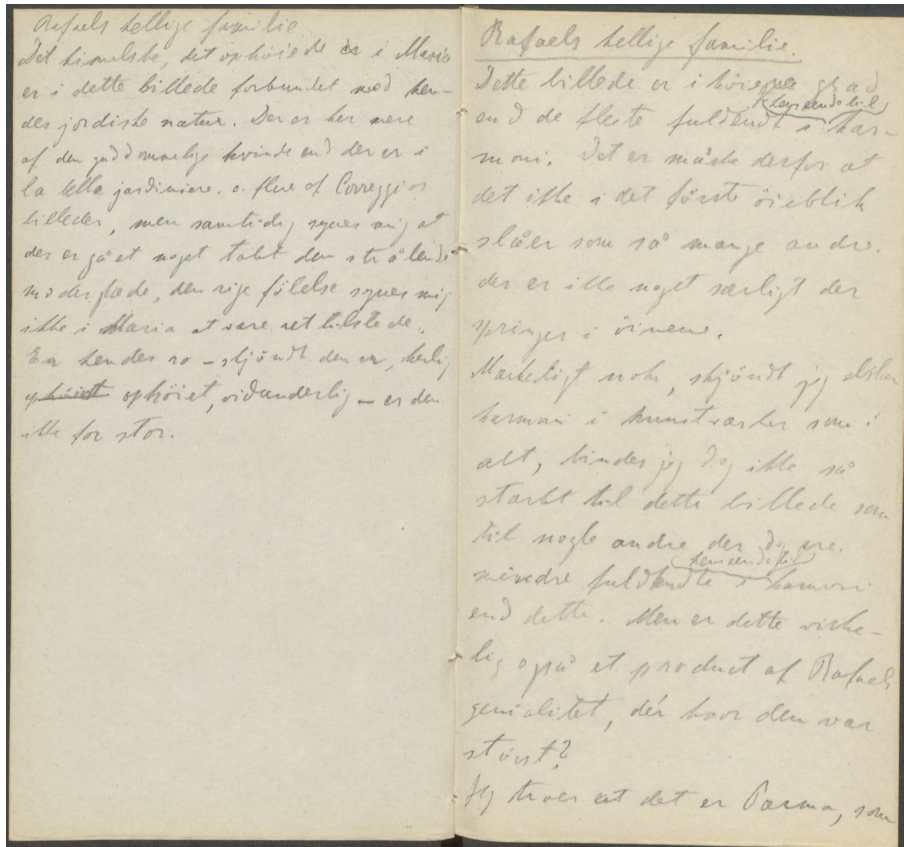 Rafaels hellige familie
Det himelske, det ophöiede er i Maria
er i dette billede forbundet med hen-
des jordiske natur. Der er her mere
af den guddommelige kvinde end der er i
la bella jardiniere. o. flere af Correggios
billeder, men samtidig synes mig at
der er gået noget tabt den strålende
moderglæde, den rige fölelse synes mig
ikke i Maria at være ret tilstede.
Er hendes ro – skjöndt den er, herlig
ophöiet ophöiet, vidunderlig – er den
ikke for stor.
Rafaels hellige familie.
Dette billede er i höiere grad
(henseende til)
end de fleste fuldendt i har-
moni. Det er måske derfor at
det ikke i det förste öieblik
slåer som så mange andre.
der er ikke noget særligt der
springer i öinene.
Mærkeligt nok, skjöndt jeg elsker
harmoni i kunstværker som i
alt, bindes jeg dog ikke så
stærkt til dette billede som
til nogle andre der dog ere
(henseende til)
mindre fuldendte i harmoni
end dette. Men er dette virke-
lig også et product af Rafaels
genialitet, dér hvor den var
störst?
Jeg troer at det er Parma, som